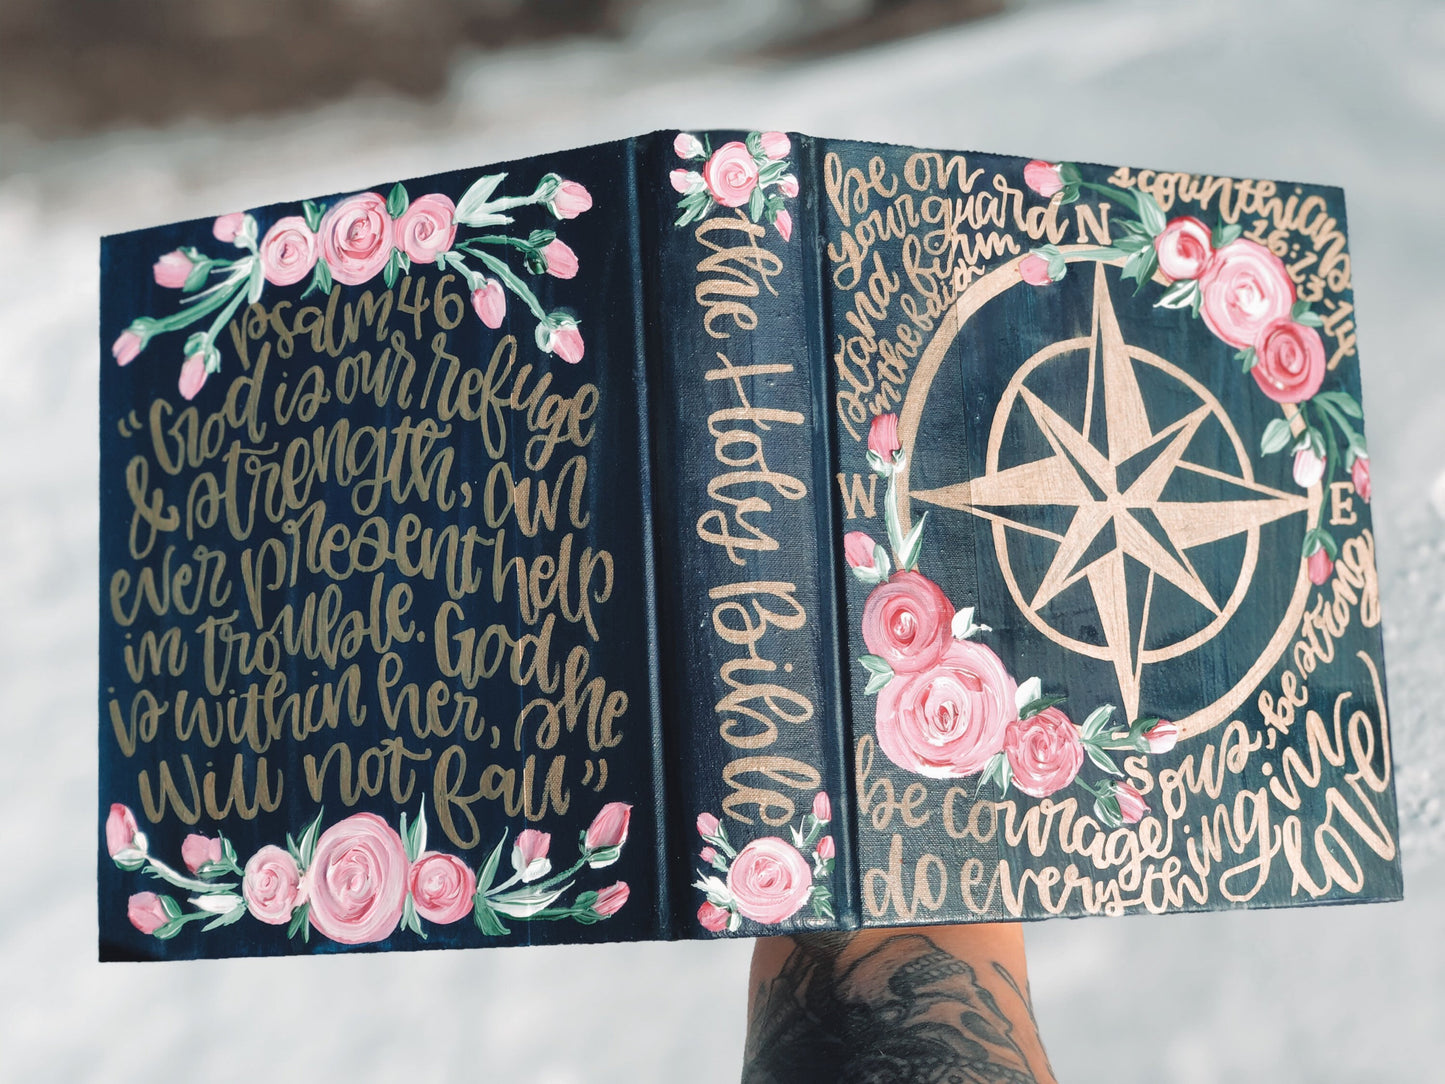 psalm 46
"God is our refuge
& strength, an
ever present help
in trouble. God
is within her, she
will not fall"
the Holy Bible
be on
your guard
stand firm
in the faith
1 corinthians
16:13-14
N
W
E
be courageous, be strong
do everything in
love